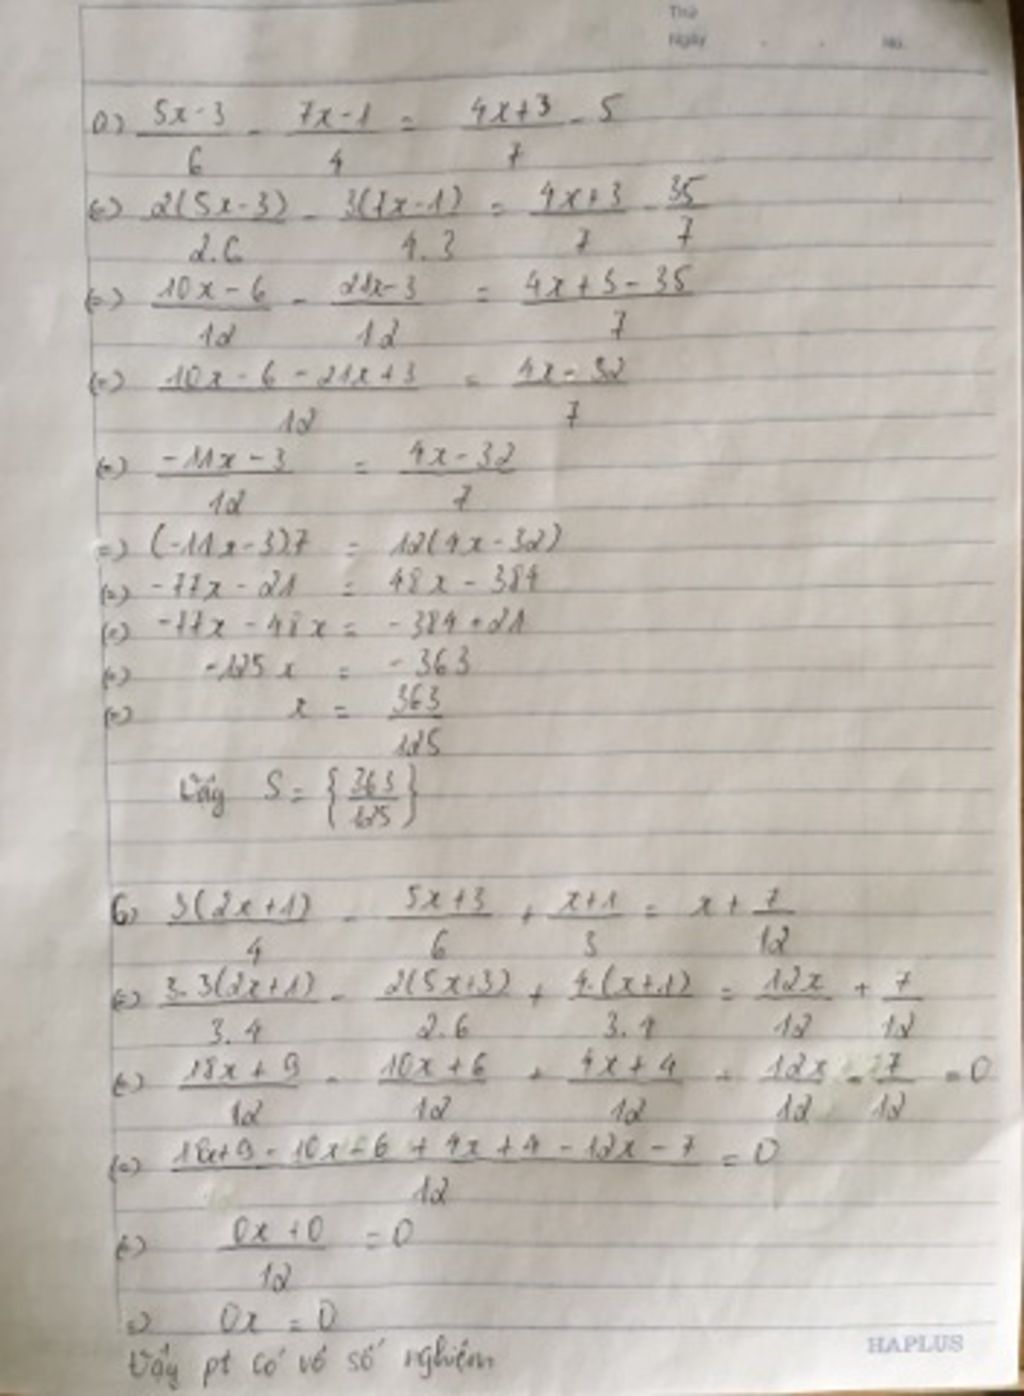 Thứ
Ngày . . No.
a) (5x-3)/6 - (7x-1)/4 = (4x+3)/7 - 5
(=) 2(5x-3)/2.6 - 3(7x-1)/4.3 = (4x+3)/7 - 35/7
(=) (10x-6)/12 - (21x-3)/12 = (4x+3-35)/7
(=) (10x-6-21x+3)/12 = (4x-32)/7
(=) (-11x-3)/12 = (4x-32)/7
=) (-11x-3)7 = 12(4x-32)
(=) -77x - 21 = 48x - 384
(=) -77x - 48x = -384+21
(=) -125x = -363
(=) x = 363/125
Vậy S = {363/125}
b) 3(2x+1)/4 - (5x+3)/6 + (x+1)/3 = x + 7/12
(=) 3.3(2x+1)/3.4 - 2(5x+3)/2.6 + 4.(x+1)/3.4 = 12x/12 + 7/12
(=) (18x+9)/12 - (10x+6)/12 + (4x+4)/12 - 12x/12 - 7/12 = 0
(=) (18x+9-10x-6+4x+4-12x-7)/12 = 0
(=) (0x+0)/12 = 0
=) 0x = 0
Vậy pt có vô số nghiệm
HAPLUS